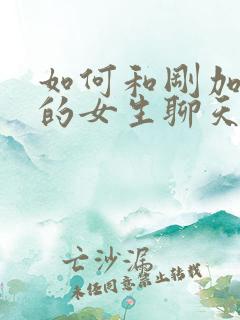 如何和刚加
的女生聊天
亡沙漏
未经同意禁止转载